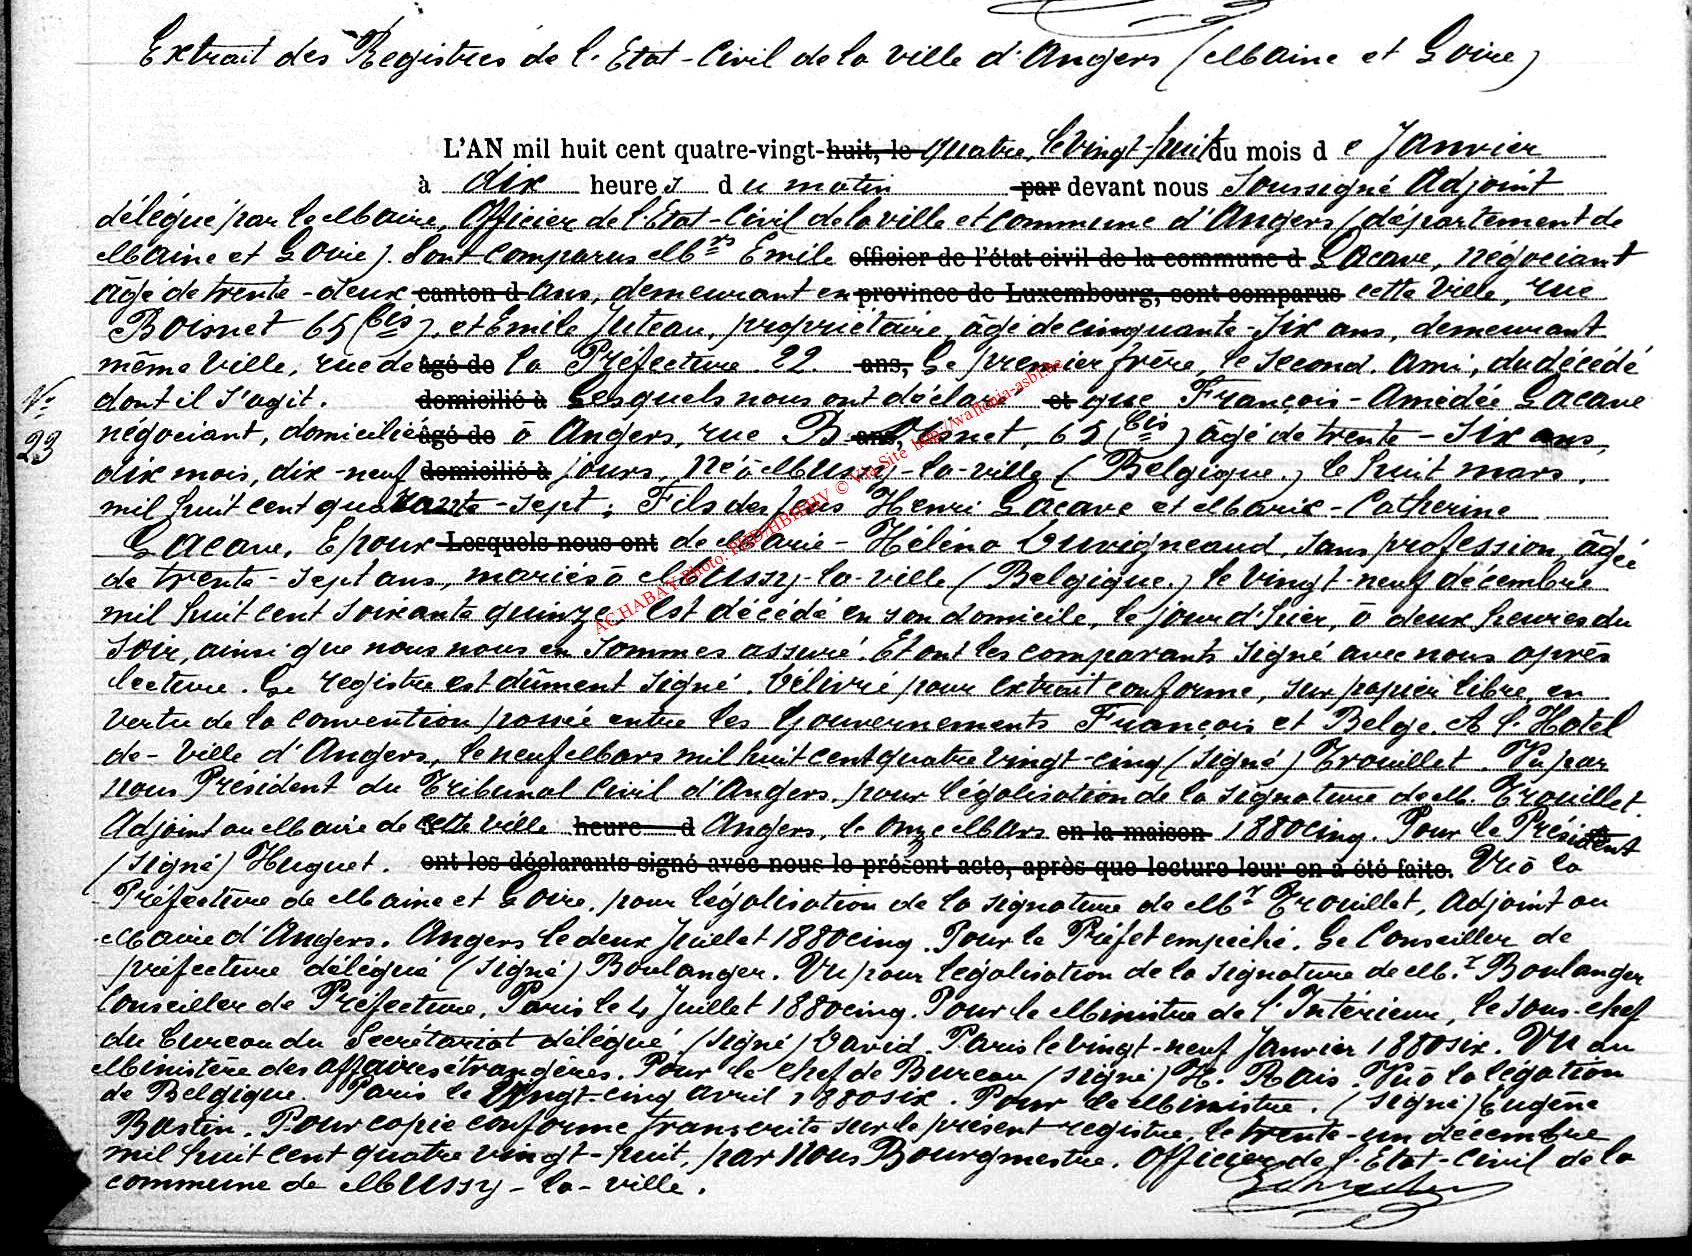 Extrait des Registres de l'Etat-Civil de la ville d'Angers (Maine et Loire)
L'AN mil huit cent quatre-vingt-huit, le quatre, le vingt huit du mois d e Janvier
à dix heure s d u matin par devant nous Soussigné Adjoint
délégué par le Maire, Officier de l'Etat-Civil de la ville et commune d'Angers (département de
Maine et Loire). Sont comparus Mrs Emile officier de l'état civil de la commune d Lacave, négociant
âgé de trente-deux canton d ans, demeurant en province de Luxembourg, sont comparus cette ville, rue
Boisnet 65 (bis), et Emile Juteau, propriétaire, âgé de cinquante-six ans, demeurant
même ville, rue de âgé de la Préfecture 22. ans, Le premier frère, le second ami, du décédé
dont il s'agit. domicilié à Lesquels nous ont déclaré et que François-Amédée Lacave
négociant, domicilié âgé de à Angers, rue B ans, oisnet, 65 (bis) âgé de trente-six ans,
dix mois, dix-neuf domicilié à jours, né à Mussy-la-ville (Belgique) le huit mars,
mil huit cent quarante-sept; Fils des feus Henri Lacave et Marie-Catherine
Lacave, Epoux Lesquels nous ont de Marie-Hélène Duvigneaud, sans profession, âgée
de trente-sept ans, mariés à Mussy-la-ville (Belgique) le vingt-neuf décembre
mil huit cent soixante quinze est décédé en son domicile, le jour d'hier, à deux heures du
soir, ainsi que nous nous en sommes assuré. Et ont les comparants signé avec nous après
lecture. Le registre est dûment signé. Délivré pour extrait conforme, sur papier libre, en
vertu de la convention passée entre les Gouvernements Français et Belge. A l'Hotel
de-Ville d'Angers, le neuf Mars mil huit cent quatre vingt-cinq (signé) Trouillet. Vu par
nous Président du Tribunal Civil d'Angers, pour légalisation de la signature de M. Trouillet.
Adjoint au Maire de cette ville heure d Angers, le onze Mars en la maison 1880cinq. Pour le Président
(signé) Huguet. ont les déclarants signé avec nous le présent acte, après que lecture leur en à été faite. Vu à la
Préfecture de Maine et Loire, pour légalisation de la signature de Mr Trouillet, Adjoint au
Maire d'Angers. Angers le deux Juillet 1880cinq. Pour le Préfet empêché. Le Conseiller de
préfecture délégué (signé) Boulanger. Vu pour légalisation de la signature de M.r Boulanger
Conseiller de Préfecture, Paris le 4 Juillet 1880cinq. Pour le Ministre de l'Intérieur, le sous-chef
du bureau du Secrétariat délégué (signé) David. Paris le vingt-neuf Janvier 1880six. Vu au
Ministère des affaires étrangères. Pour le chef de Bureau (signé) H. Rais. Vu à la légation
de Belgique. Paris le vingt-cinq avril 1880six. Pour le Ministre. (signé) Eugène
Bastin. Pour copie conforme transcrite sur le présent registre, le trente-un décembre
mil huit cent quatre vingt-huit, par Nous Bourgmestre. Officier de l'Etat-Civil de la
commune de Mussy-la-ville.
No
23
http://wallonia-asbl.be
© Via Site